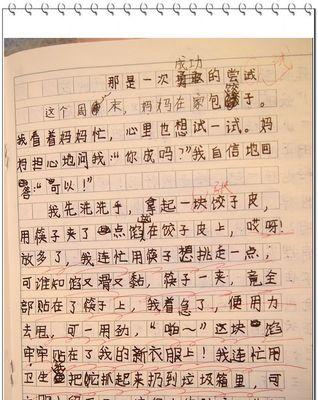 成功
那是一次的尝试
这个周末，妈妈在家包饺子。
我看着妈妈忙，心里也想试一试。妈
妈担心地问我“你成吗？”我自信地回
答“可以！”
张
我先洗洗手，拿起一块饺子皮，
用筷子夹了点馅在饺子皮上，哎呀！
放多了，我连忙用筷子想挑走一点，
可谁知馅又滑又黏，筷子一夹，竟全
部贴在了筷子上，我着急了，便用力
去甩，可一用劲，“啪～”这块馅
牢牢贴在了我的新衣服上！我连忙用
卫生把它抓起来扔到垃圾箱里，可